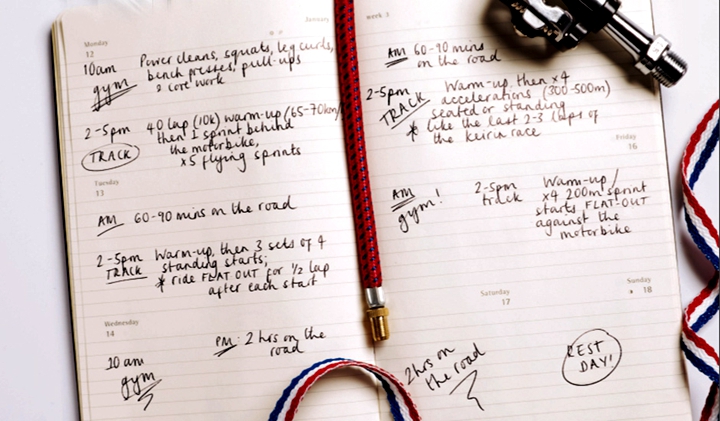 January
Monday
12
10am
gym
Power cleans, squats, leg curls,
bench presses, pull-ups
& core work
2-5pm
TRACK
40 lap (10k) warm-up (65-70km/
then 1 sprint behind
the motorbike,
x5 flying sprints
Tuesday
13
AM 60-90 mins on the road
2-5pm
TRACK
Warm-up, then 3 sets of 4
standing starts;
* ride FLAT OUT for 1/2 lap
after each start
Wednesday
14
10am
gym
PM: 2 hrs on the
road
week 3
AM 60-90 mins
on the road
2-5pm
TRACK
Warm-up, then x4
accelerations (300-500m)
seated or standing
* like the last 2-3 laps of
the keirin race
Friday
16
AM
gym!
2-5pm
track
Warm-up/
x4 200m sprint
starts FLAT OUT
against the
motorbike
Saturday
17
2hrs on
the road
Sunday
18
REST
DAY!